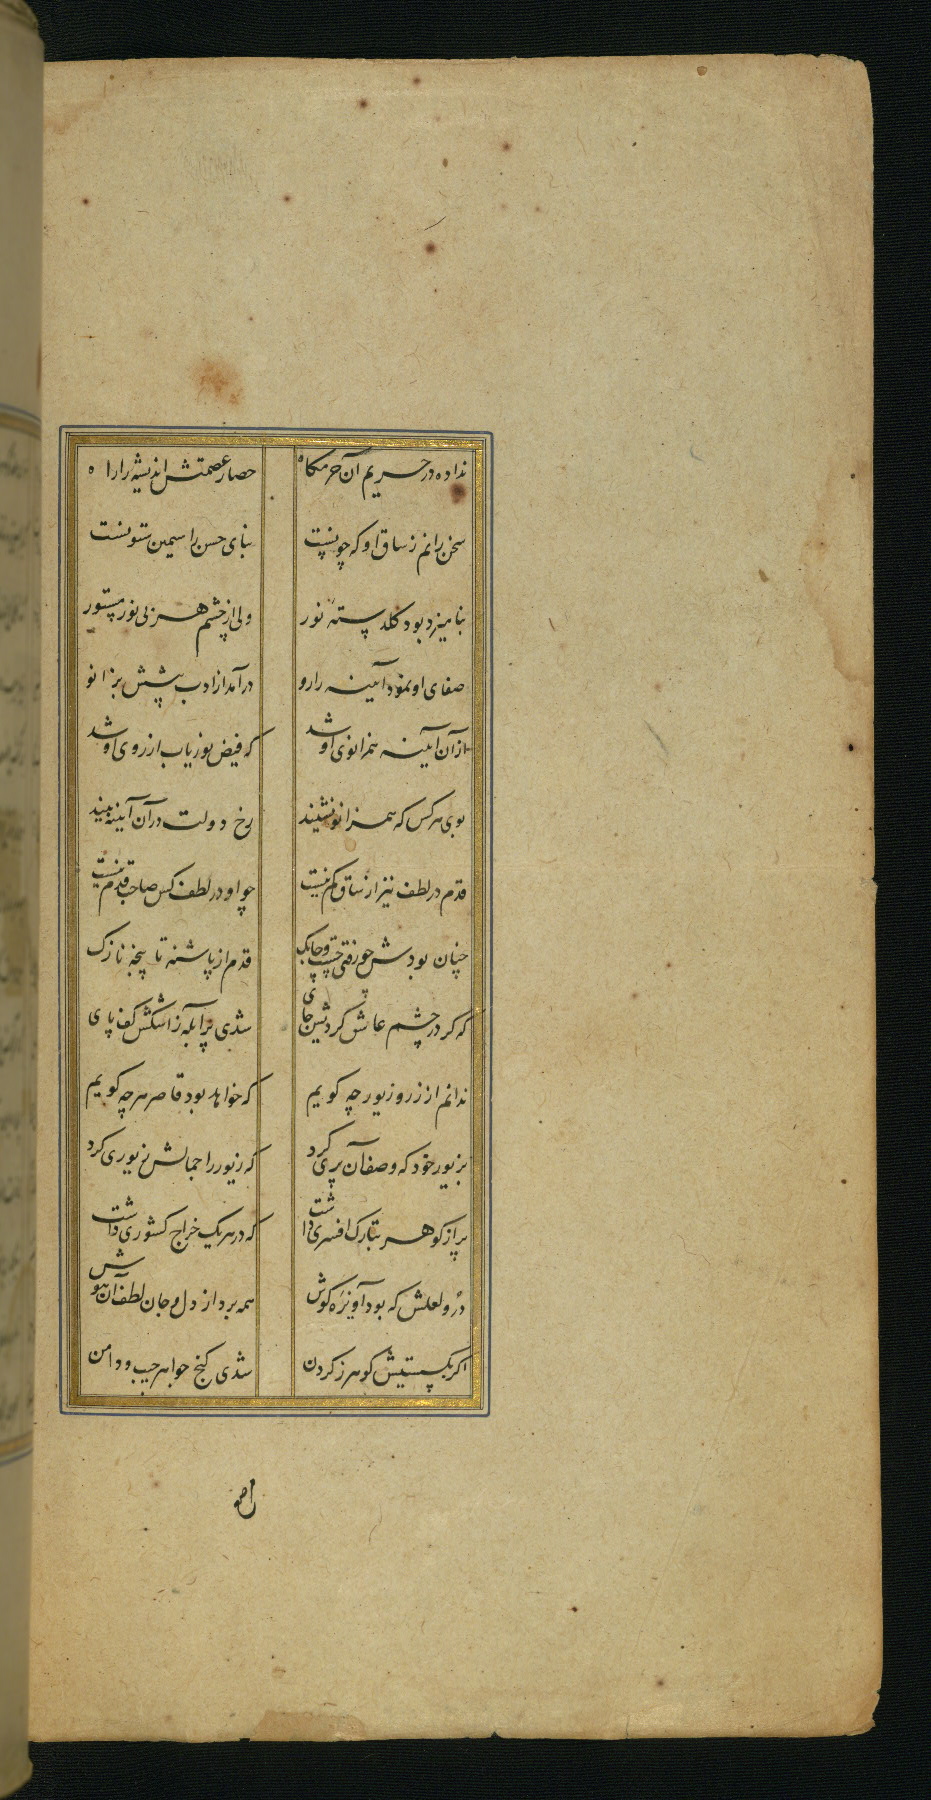 نداده در حریم آن حرمگاه حصار عصمتش اندیشه را راه
سخن رانم ز ساق او که چونست بنای حسن را سیمین ستونست
بنامیزد بود گلدسته نور ولی از چشم هر بی نور مستور
صفای او نمود آیینه را رو درآمد از ادب پیشش بزانو
از آن آیینه همزانوی او شد که فیض نور یاب از روی او شد
بوی هر کس که همزانو نشیند رخ دولت در آن آیینه بیند
قدم در لطف نیز از ساق کم نیست چو او در لطف کس صاحب قدم نیست
چنان بودش چو رفتی چست و چابک قدم از پاشنه تا پنجه نازک
که گر در چشم عاشق کردیش جای شدی پر آبله ز اشکش کف پای
ندانم از زر و زیور چه گویم که خواهد بود قاصر هر چه گویم
بزیور خود که وصف آن پری کرد که زیور را جمالش زیوری کرد
پر از گوهر بتارک افسری داشت که در هر یک خراج کشوری داشت
در و لعلش که بود آویزه گوش همه برد از دل و جان لطف آن هوش
اگر بگسستیش گوهر ز گردن شدی گنج جواهر جیب و دامن